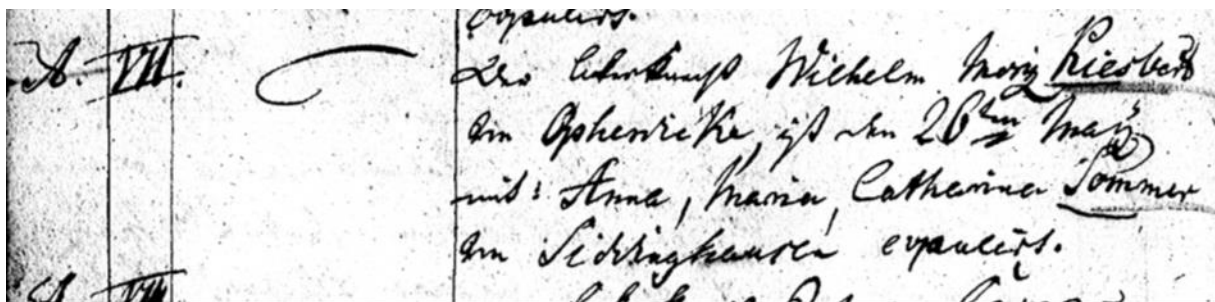 copulirt.
A. VII. Der Ackerknecht Wilhelm Moriz Riesbert
Im Ophericke, ist den 26ten May
mit: Anna, Maria, Catharina Sommer
Im Siddinghausen copulirt.
A. VIII.